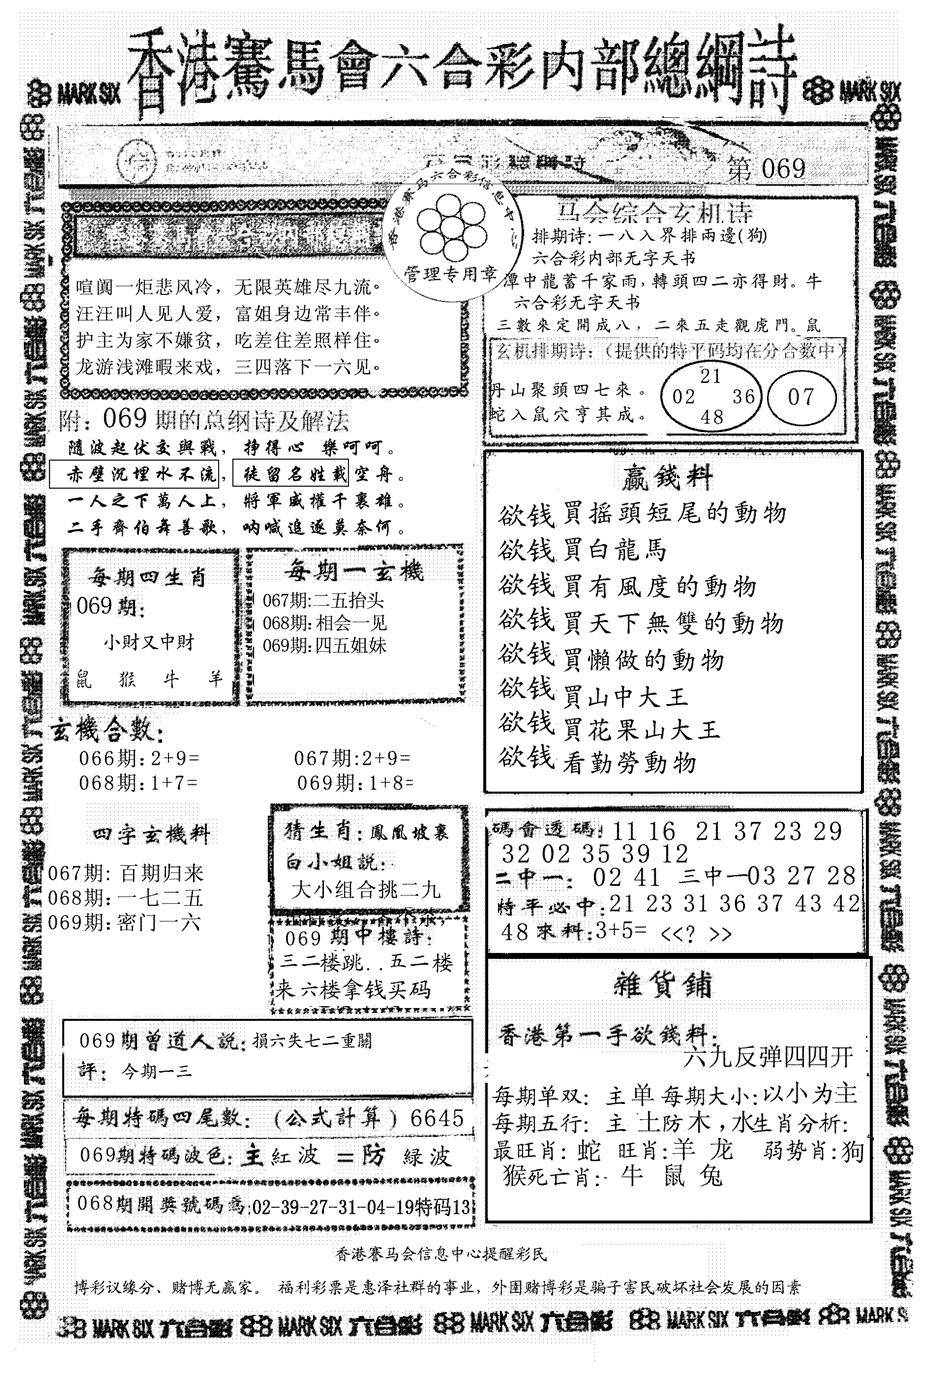 香港賽馬會六合彩内部總綱詩
MARK SIX
MARK SIX
第 069
管理专用章
喧阗一炬悲风冷，无限英雄尽九流。
汪汪叫人见人爱，富姐身边常丰伴。
护主为家不嫌贫，吃差住差照样住。
龙游浅滩暇来戏，三四落下一六见。
马会综合玄机诗
排期诗:一八入界排兩邊(狗)
六合彩内部无字天书
潭中龍蓄千家雨,轉頭四二亦得財。牛
六合彩无字天书
三數來定開成八，二來五走觀虎門。鼠
玄机排期诗:（提供的特平码均在分合数中）
丹山聚頭四七來。
蛇入鼠穴亨其成。
21
02 36
48
07
附: 069 期的总纲诗及解法
隨波起伏交與戰，掙得心 樂呵呵。
赤壁沉埋水不流，徒留名姓載空舟。
一人之下萬人上，將軍威權千裏雄。
二手齊伯舞善歌，吶喊追逐莫奈何。
每期四生肖
069期:
小財又中財
鼠 猴 牛 羊
每期一玄機
067期:二五抬头
068期:相会一见
069期:四五姐妹
玄機合數:
066期:2+9=
067期:2+9=
068期:1+7=
069期:1+8=
贏錢料
欲钱買摇頭短尾的動物
欲钱買白龍馬
欲钱買有風度的動物
欲钱買天下無雙的動物
欲钱買懶做的動物
欲钱買山中大王
欲钱買花果山大王
欲钱看勤勞動物
四字玄機料
067期: 百期归来
068期:一七二五
069期:密门一六
猜生肖:鳳凰坡裏
白小姐説:
大小组合挑二九
069期中樓詩:
三二楼跳..五二楼
来六楼拿钱买码
碼會透碼:11 16 21 37 23 29
32 02 35 39 12
二中一: 02 41 三中一03 27 28
特平必中:21 23 31 36 37 43 42
48 來料:3+5= <<? >>
069期曾道人説:損六失七二重關
評: 今期一三
每期特碼四尾數:（公式計算）6645
069期特碼波色:主紅波 =防 緑波
068期開獎號碼爲:02-39-27-31-04-19特码13
雜貨鋪
香港第一手欲錢料:
六九反弹四四开
每期单双: 主单 每期大小:以小为主
每期五行: 主 土防木，水生肖分析:
最旺肖: 蛇 旺肖:羊 龙 弱势肖:狗
猴死亡肖: 牛 鼠 兔
香港賽马会信息中心提醒彩民
博彩议缘分、赌博无赢家。 福利彩票是惠泽社群的事业，外围赌博彩是骗子害民破坏社会发展的因素
MARK SIX 六合彩 MARK SIX 六合彩 MARK SIX 六合彩 MARK SIX 六合彩 MARK SIX